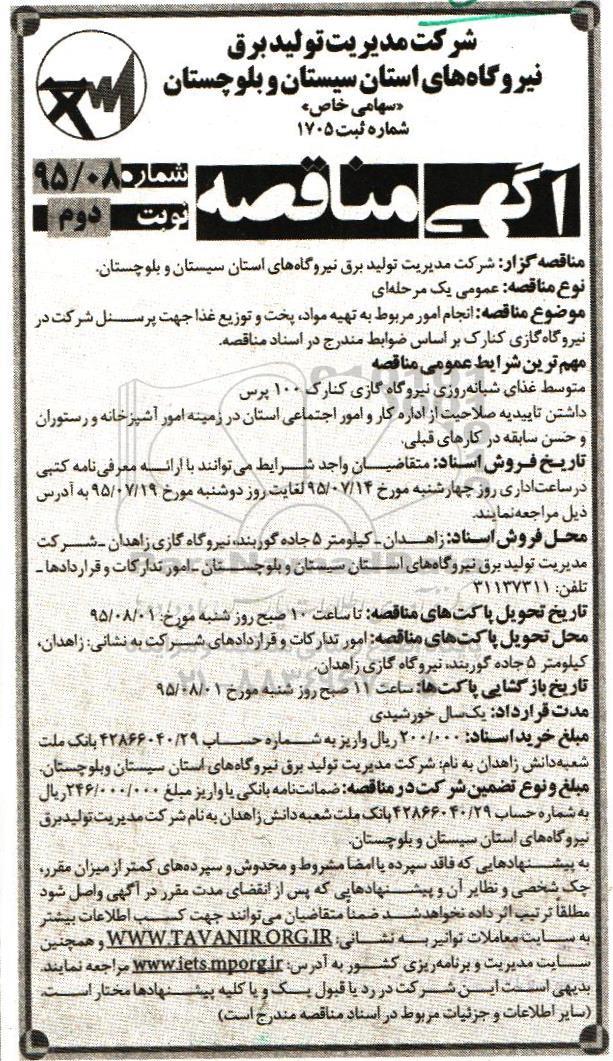 شرکت مدیریت تولید برق
نیروگاه‌های استان سیستان و بلوچستان
«سهامی خاص»
شماره ثبت ۱۷۰۵
آگهی مناقصه
شماره ۹۵/۰۸
نوبت دوم
مناقصه گزار: شرکت مدیریت تولید برق نیروگاه‌های استان سیستان و بلوچستان.
نوع مناقصه: عمومی یک مرحله‌ای
موضوع مناقصه: انجام امور مربوط به تهیه مواد، پخت و توزیع غذا جهت پرسنل شرکت در
نیروگاه گازی کنارک بر اساس ضوابط مندرج در اسناد مناقصه.
مهم ترین شرایط عمومی مناقصه
متوسط غذای شبانه‌روزی نیروگاه گازی کنارک ۱۰۰ پرس
داشتن تاییدیه صلاحیت از اداره کار و امور اجتماعی استان در زمینه امور آشپزخانه و رستوران
و حسن سابقه در کارهای قبلی.
تاریخ فروش اسناد: متقاضیان واجد شرایط می‌توانند با ارائه معرفی‌نامه کتبی
در ساعت اداری روز چهارشنبه مورخ ۹۵/۰۷/۱۴ لغایت روز دوشنبه مورخ ۹۵/۰۷/۱۹ به آدرس
ذیل مراجعه نمایند.
محل فروش اسناد: زاهدان - کیلومتر ۵ جاده گوربند، نیروگاه گازی زاهدان - شرکت
مدیریت تولید برق نیروگاه‌های استان سیستان و بلوچستان - امور تدارکات و قراردادها -
تلفن: ۳۱۱۳۷۳۱۱
تاریخ تحویل پاکت‌های مناقصه: تا ساعت ۱۰ صبح روز شنبه مورخ: ۹۵/۰۸/۰۱
محل تحویل پاکت‌های مناقصه: امور تدارکات و قراردادهای شرکت به نشانی: زاهدان،
کیلومتر ۵ جاده گوربند، نیروگاه گازی زاهدان.
تاریخ بازگشایی پاکت‌ها: ساعت ۱۱ صبح روز شنبه مورخ ۹۵/۰۸/۰۱
مدت قرارداد: یک‌سال خورشیدی
مبلغ خرید اسناد: ۲۰۰/۰۰۰ ریال واریز به شماره حساب ۴۲۸۶۶۰۴۰/۲۹ بانک ملت
شعبه دانش زاهدان به نام: شرکت مدیریت تولید برق نیروگاه‌های استان سیستان وبلوچستان.
مبلغ و نوع تضمین شرکت در مناقصه: ضمانت‌نامه بانکی یا واریز مبلغ ۲۴۶/۰۰۰/۰۰۰ ریال
به شماره حساب ۴۲۸۶۶۰۴۰/۲۹ بانک ملت شعبه دانش زاهدان به نام شرکت مدیریت تولید برق
نیروگاه‌های استان سیستان و بلوچستان.
به پیشنهادهایی که فاقد سپرده یا امضا مشروط و مخدوش و سپرده‌های کمتر از میزان مقرر،
چک شخصی و نظایر آن و پیشنهادهایی که پس از انقضای مدت مقرر در آگهی واصل شود
مطلقاً ترتیب اثر داده نخواهد شد ضمناً متقاضیان می‌توانند جهت کسب اطلاعات بیشتر
به سایت معاملات توانیر به نشانی: WWW.TAVANIR.ORG.IR و همچنین
سایت مدیریت و برنامه‌ریزی کشور به آدرس: www.iets.mporg.ir مراجعه نمایند.
بدیهی است این شرکت در رد یا قبول یک و یا کلیه پیشنهادها مختار است.
(سایر اطلاعات و جزئیات مربوط در اسناد مناقصه مندرج است)